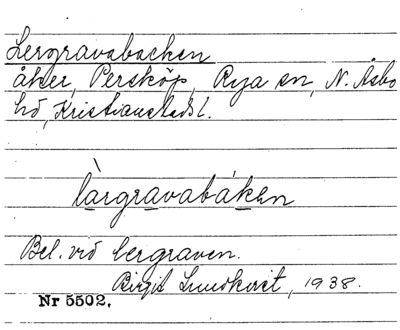 Lergravabacken
åker, Persköp, Rya sn, N. Åsbo
hd, Kristianstads l.
làrgravabáken
Bel. vid lergraven.
Birgit Lundkvist, 1938.
Nr 5502.